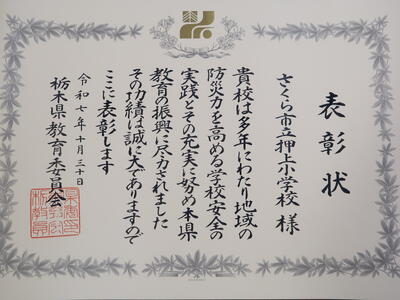 表彰状
さくら市立押上小学校 様
貴校は多年にわたり地域の
防災力を高める学校安全の
実践とその充実に努め本県
教育の振興に尽力されました
その功績は誠に大でありますので
ここに表彰します
令和七年十月三十日
栃木県教育委員会